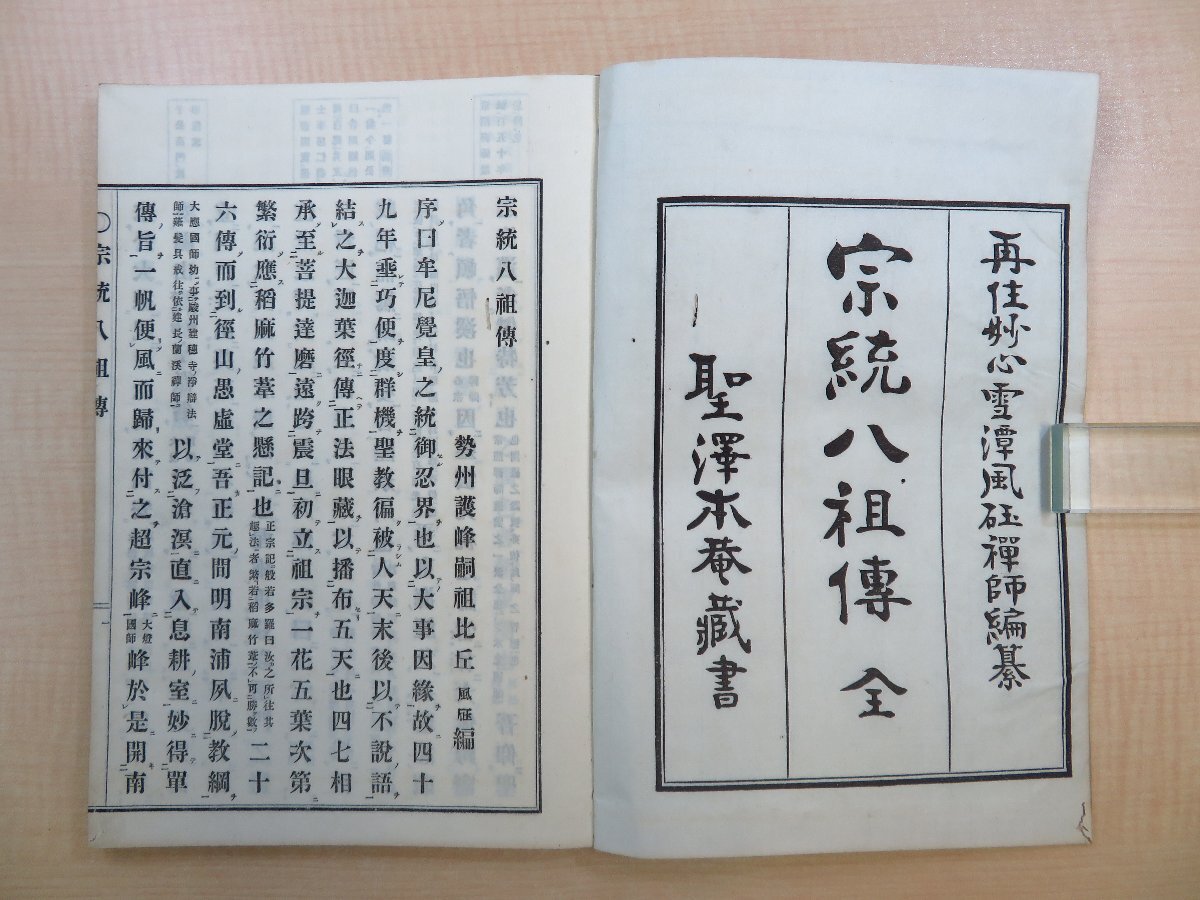 再住妙心雪潭風玨禪師編纂
宗統八祖傳 全
聖澤本菴藏書
宗統八祖傳
勢州護峰嗣祖比丘 風玨編
序曰牟尼覺皇之統御忍界也以大事因緣故四十
九年垂巧便度群機聖教徧被人天末後以不說語
結之大迦葉徑傳正法眼藏以播布五天也四七相
承至菩提達磨遠跨震旦初立祖宗一花五葉次第
繁衍應稻麻竹葦之懸記也正宗記般若多羅曰汝之所往其趣法者繁若稻麻竹葦不可勝數二十
六傳而到徑山愚虛堂吾正元間明南浦夙脫教綱
大應國師幼事駿州建穗寺淨辯法師薙髮具戒往依建長蘭溪禪師以泛滄溟直入息耕室妙得單
傳旨一帆便風而歸來付之超宗峰大燈國師峰於是開南
〇宗統八祖傳
一